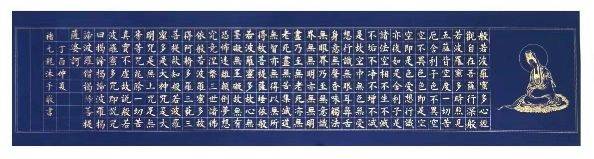 般若波羅蜜多心經
觀自在菩薩行深般
若波羅蜜多時照見
五蘊皆空度一切苦
厄舍利子色不異空
空不異色色即是空
空即是色受想行識
亦復如是舍利子是
諸法空相不生不滅
不垢不淨不增不減
是故空中無色無受
想行識無眼耳鼻舌
身意無色聲香味觸法
無眼界乃至無意識
界無無明亦無無明
盡乃至無老死亦無
老死盡無苦集滅道
無智亦無得以無所
得故菩提薩埵依般
若波羅蜜多故心無
罣礙無罣礙故無有
恐怖遠離顛倒夢想
究竟涅槃三世諸佛
依般若波羅蜜多故
得阿耨多羅三藐三
菩提故知般若波羅
蜜多是大神咒是大
明咒是無上咒是無
等等咒能除一切苦
真實不虛故說般若
波羅蜜多咒即說咒
曰揭諦揭諦波羅揭
諦波羅僧揭諦菩提
薩婆訶
丁酉仲夏
沐手敬書